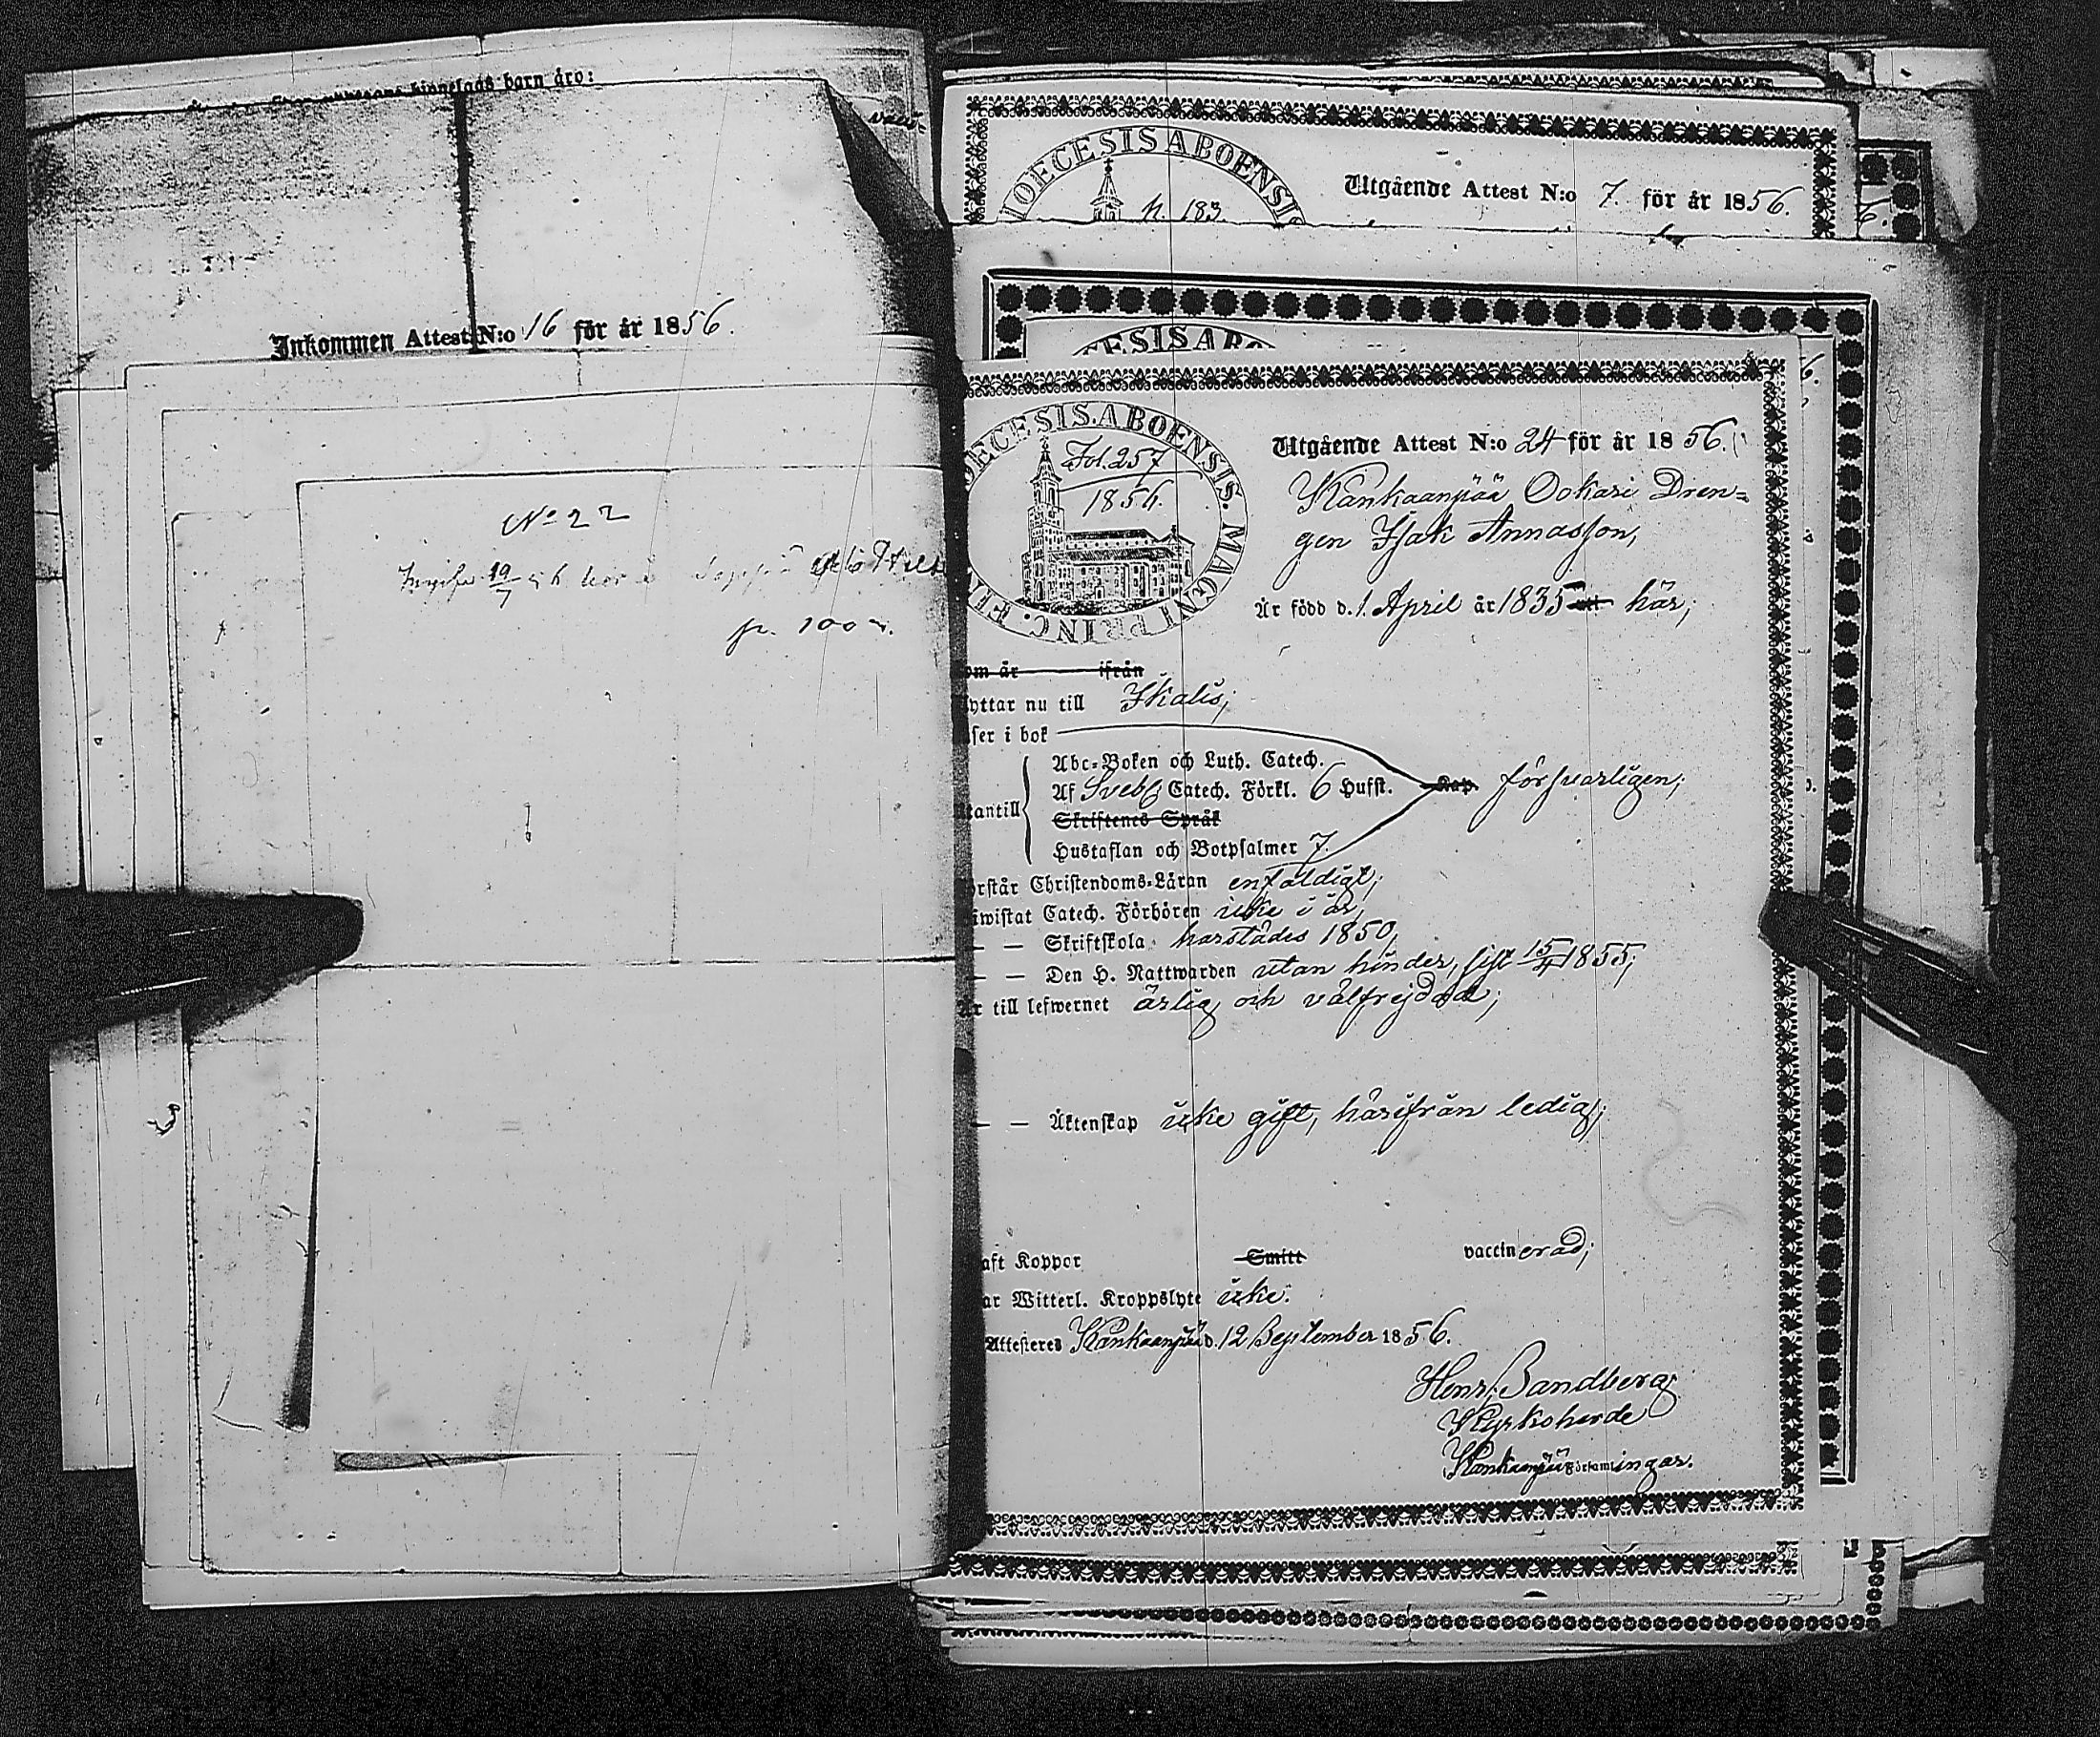 barn äro:
Inkommen Attest N:o 16 för år 1856.
No 22
19/7
p. 100
DIOECESIS ABOENSIS
n. 183.
Utgående Attest N:o 7. för år 1856.
OECESIS. ABOENSIS. MAGNI PRINC. FIN
Fol. 257
1856.
Utgående Attest N:o 24 för år 1856.
Kankaanpää Ookari Dren=
gen Isak Annasson,
Är född d. 1. April år 1835 här;
om år ifrån
yttar nu till Ikalis;
ser i bok
Abc=Boken och Luth. Catech.
Af Sveb: Catech. Förkl. 6 Hufst. Kap. försvarligen;
tantill
Skriftenes Språk
Hustaflan och Botpsalmer 7.
örstår Christendoms=Läran enfaldigt;
iwistat Catech. Förhören icke i år,
— — Skriftskola härstädes 1850,
— — Den H. Nattwarden utan hinder, sist 15/4 1855;
Är till lefwernet ärlig och välfrejdad;
— — Äktenskap icke gift, härifrån ledig;
aft Koppor Smitt vaccinerad;
ar Witterl. Kroppslyte icke.
Attesteres Kankaanpää d. 12 September 1856.
Henr. Sandberg
Kyrkoherde
Kankaanpää Församlingar.